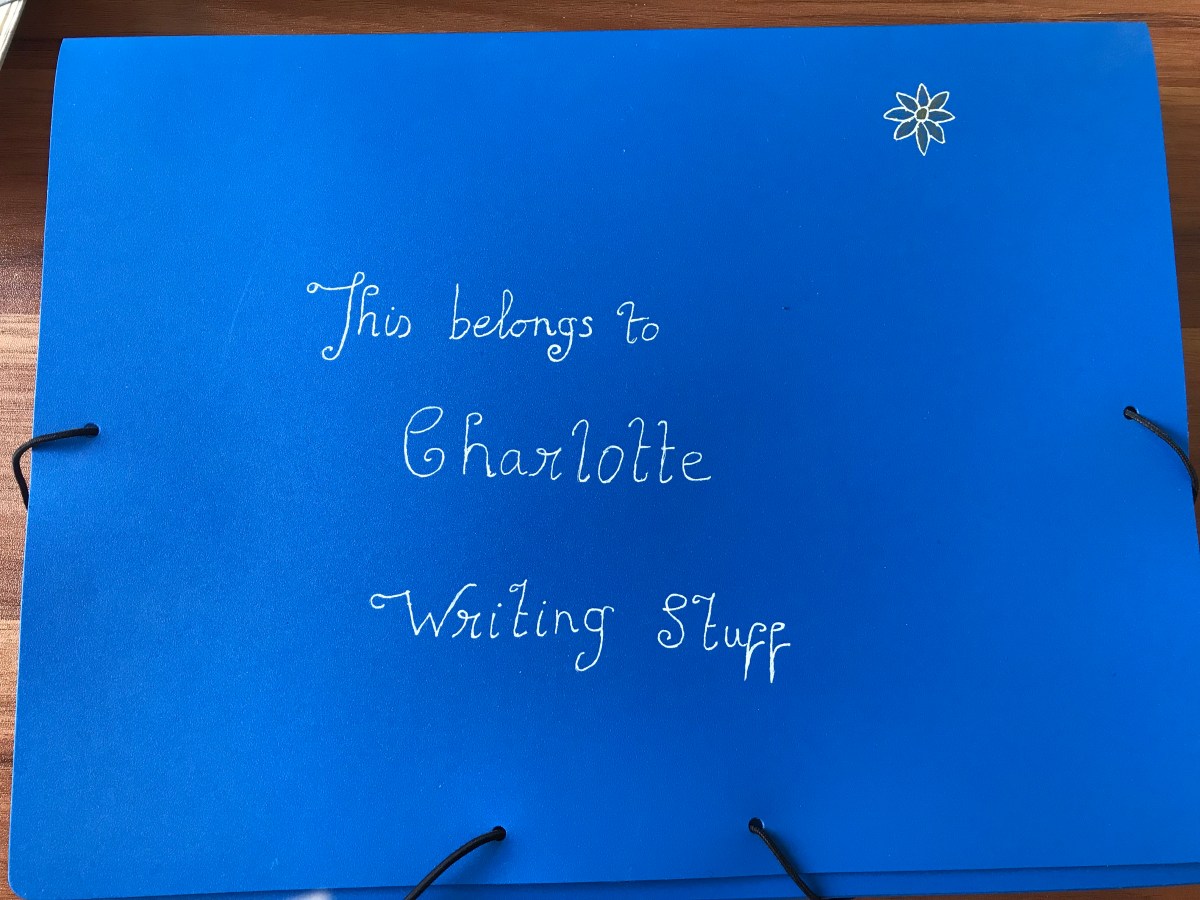 This belongs to
Charlotte
Writing Stuff